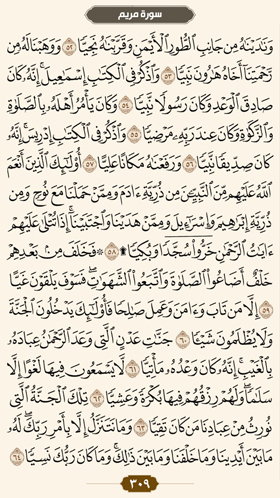 سورة مريم
وَنَٰدَيْنَٰهُ مِن جَانِبِ ٱلطُّورِ ٱلْأَيْمَنِ وَقَرَّبْنَٰهُ نَجِيًّا ٥٢ وَوَهَبْنَا لَهُۥ مِن
رَّحْمَتِنَآ أَخَاهُ هَٰرُونَ نَبِيًّا ٥٣ وَٱذْكُرْ فِى ٱلْكِتَٰبِ إِسْمَٰعِيلَ إِنَّهُۥ كَانَ
صَادِقَ ٱلْوَعْدِ وَكَانَ رَسُولًا نَّبِيًّا ٥٤ وَكَانَ يَأْمُرُ أَهْلَهُۥ بِٱلصَّلَوٰةِ
وَٱلزَّكَوٰةِ وَكَانَ عِندَ رَبِّهِۦ مَرْضِيًّا ٥٥ وَٱذْكُرْ فِى ٱلْكِتَٰبِ إِدْرِيسَ إِنَّهُۥ
كَانَ صِدِّيقًا نَّبِيًّا ٥٦ وَرَفَعْنَٰهُ مَكَانًا عَلِيًّا ٥٧ أُو۟لَٰٓئِكَ ٱلَّذِينَ أَنْعَمَ
ٱللَّهُ عَلَيْهِم مِّنَ ٱلنَّبِيِّـۧنَ مِن ذُرِّيَّةِ ءَادَمَ وَمِمَّنْ حَمَلْنَا مَعَ نُوحٍ وَمِن
ذُرِّيَّةِ إِبْرَٰهِيمَ وَإِسْرَٰٓءِيلَ وَمِمَّنْ هَدَيْنَا وَٱجْتَبَيْنَآ إِذَا تُتْلَىٰ عَلَيْهِمْ
ءَايَٰتُ ٱلرَّحْمَٰنِ خَرُّوا۟ سُجَّدًا وَبُكِيًّا ۩ ٥٨ ۞ فَخَلَفَ مِنۢ بَعْدِهِمْ
خَلْفٌ أَضَاعُوا۟ ٱلصَّلَوٰةَ وَٱتَّبَعُوا۟ ٱلشَّهَوَٰتِ فَسَوْفَ يَلْقَوْنَ غَيًّا
٥٩ إِلَّا مَن تَابَ وَءَامَنَ وَعَمِلَ صَٰلِحًا فَأُو۟لَٰٓئِكَ يَدْخُلُونَ ٱلْجَنَّةَ
وَلَا يُظْلَمُونَ شَيْـًٔا ٦٠ جَنَّٰتِ عَدْنٍ ٱلَّتِى وَعَدَ ٱلرَّحْمَٰنُ عِبَادَهُۥ
بِٱلْغَيْبِ إِنَّهُۥ كَانَ وَعْدُهُۥ مَأْتِيًّا ٦١ لَّا يَسْمَعُونَ فِيهَا لَغْوًا إِلَّا
سَلَٰمًا وَلَهُمْ رِزْقُهُمْ فِيهَا بُكْرَةً وَعَشِيًّا ٦٢ تِلْكَ ٱلْجَنَّةُ ٱلَّتِى
نُورِثُ مِنْ عِبَادِنَا مَن كَانَ تَقِيًّا ٦٣ وَمَا نَتَنَزَّلُ إِلَّا بِأَمْرِ رَبِّكَ لَهُۥ
مَا بَيْنَ أَيْدِينَا وَمَا خَلْفَنَا وَمَا بَيْنَ ذَٰلِكَ وَمَا كَانَ رَبُّكَ نَسِيًّا ٦٤
٣٠٩